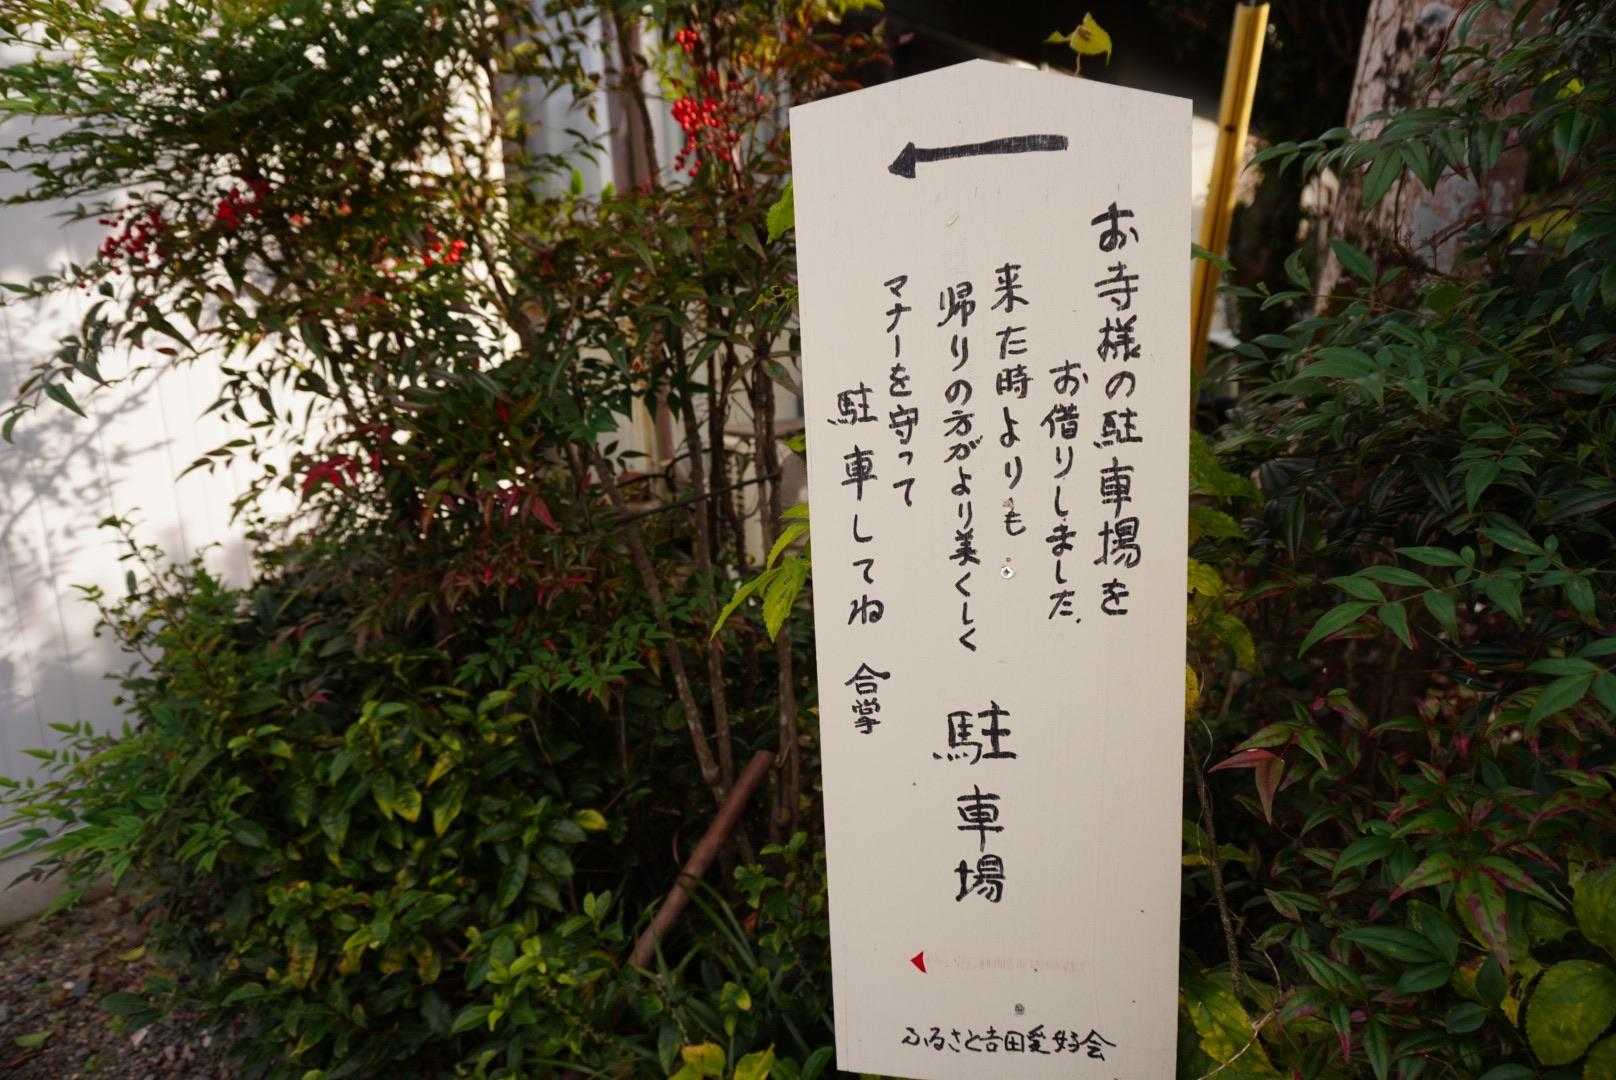 お寺様の駐車場を
お借りしました.
来た時よりも
帰りの方がより美くしく
マナーを守って
駐車してね 合掌
駐車場
ふるさと吉田愛好会